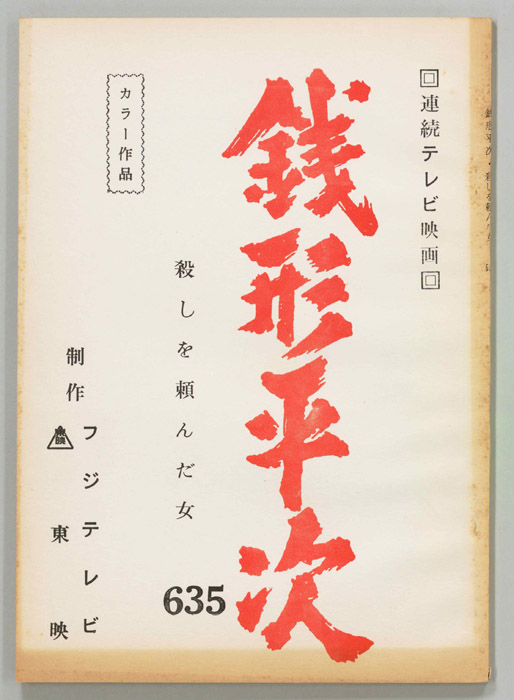 回連続テレビ映画回
銭形平次
殺しを頼んだ女
635
カラー作品
制作
フジテレビ
東映